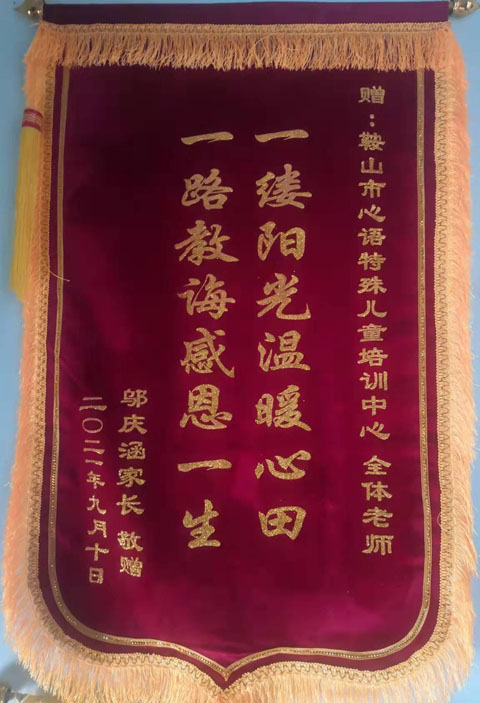 赠：鞍山市心语特殊儿童培训中心 全体老师
一缕阳光温暖心田
一路教诲感恩一生
邬庆涵家长 敬赠
二〇二一年九月十日